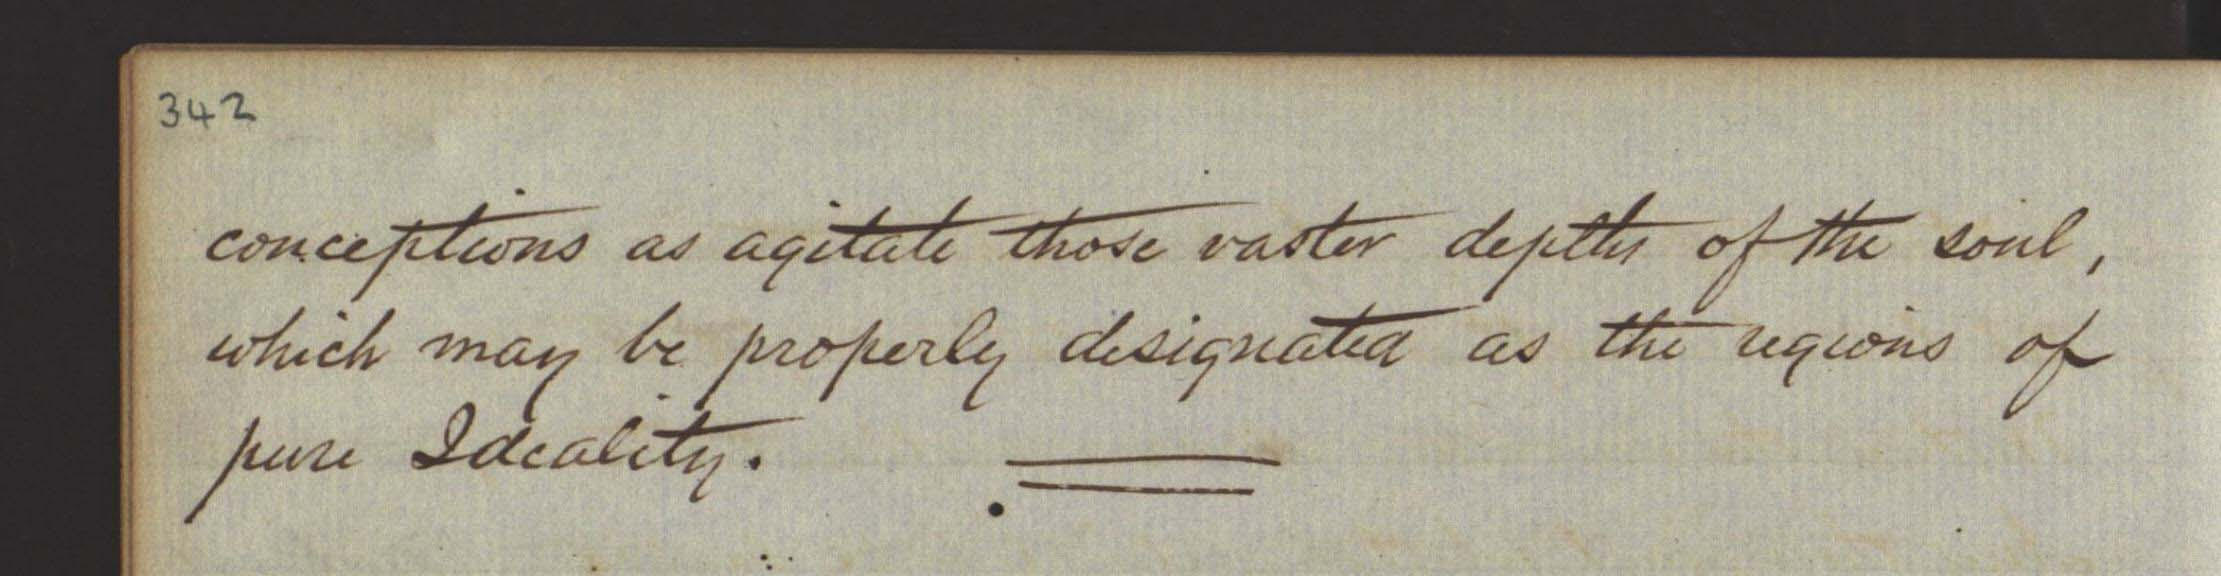 342
conceptions as agitate those vaster depths of the soul,
which may be properly designated as the regions of
pure Ideality.